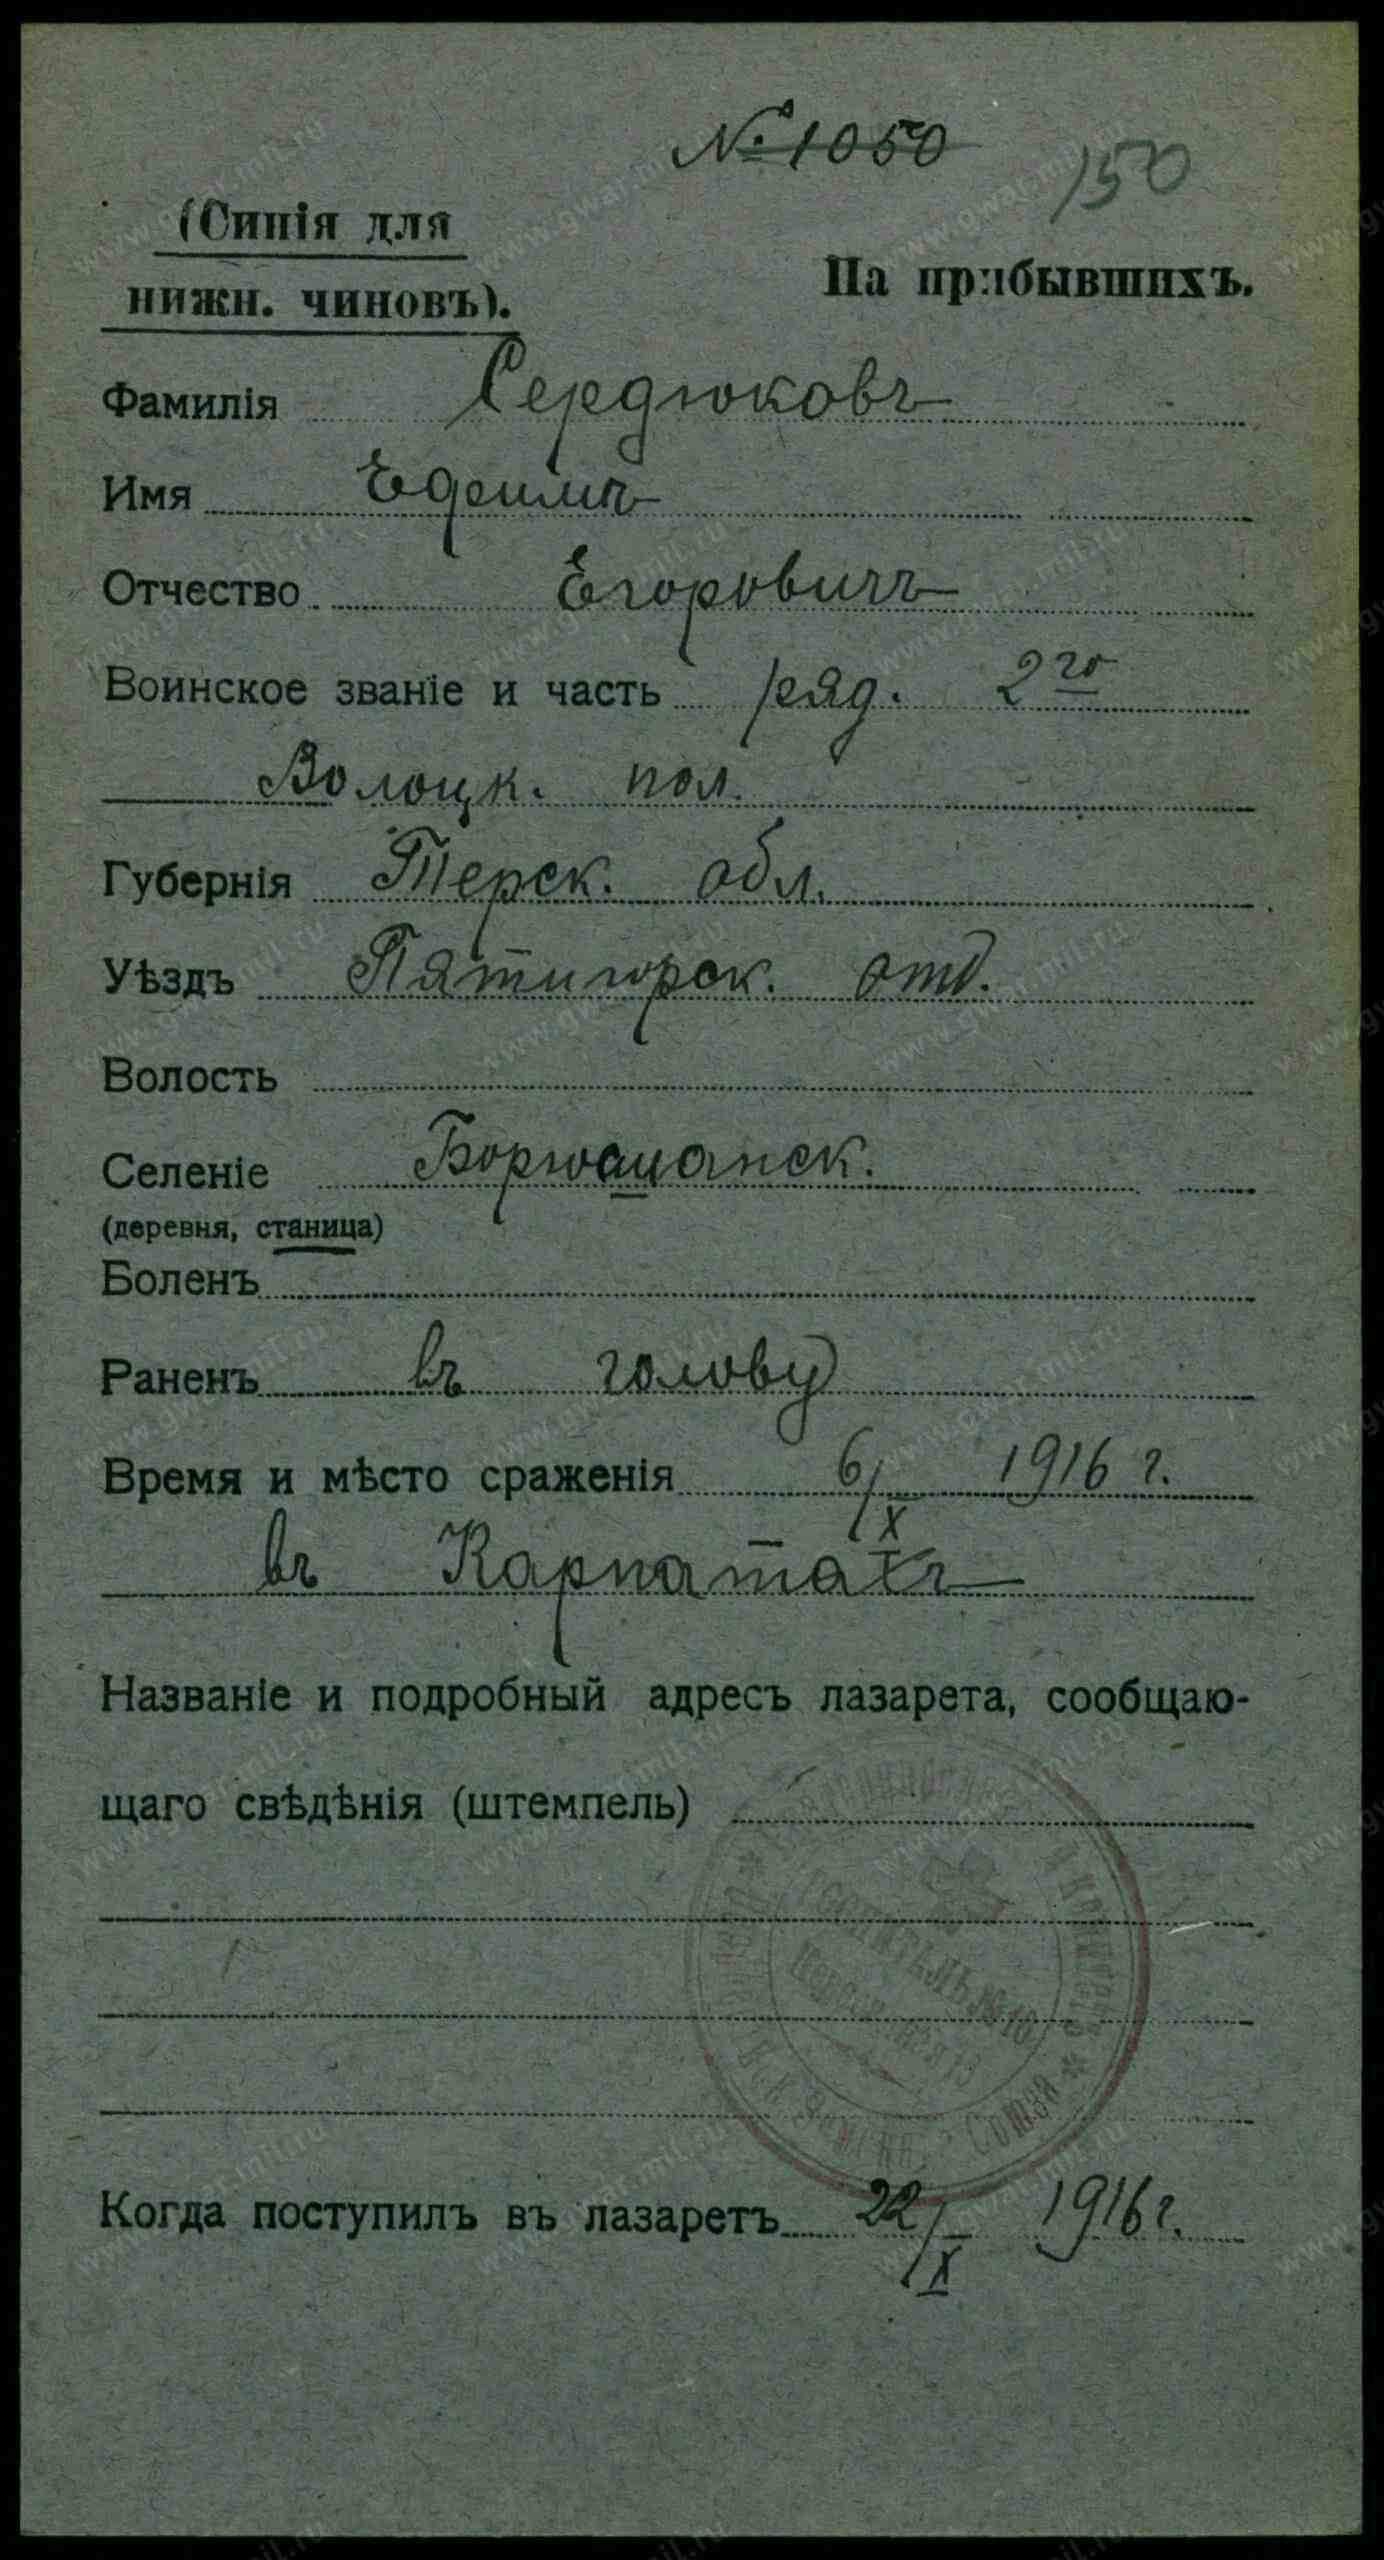 № 1050
150
(Синія для
нижн. чиновъ).
На прибывшихъ.
Фамилія Сердюковъ
Имя Ефимъ
Отчество Егоровичъ
Воинское званіе и часть ряд. 2го
Волоцк. пол.
Губернія Терск. обл.
Уѣздъ Пятигорск. отд.
Волость
Селеніе
(деревня, станица)
Боленъ
Раненъ въ голову
Время и мѣсто сраженія 6/X 1916 г.
въ Карпатахъ
Названіе и подробный адресъ лазарета, сообщаю-
щаго свѣдѣнія (штемпель)
Союза
Когда поступилъ въ лазаретъ 22/X 1916 г.
www.gwar.mil.ru